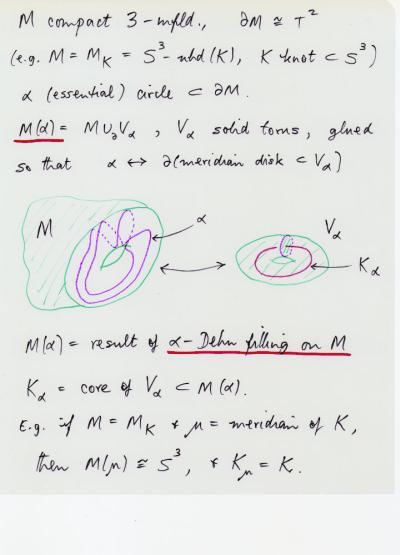 M compact 3-mfld., ∂M ≅ T²
(e.g. M = M_K = S³ - nhd(K), K knot ⊂ S³)
α (essential) circle ⊂ ∂M.
M(α) = M ∪_∂ V_α, V_α solid torus, glued
so that α ↔ ∂(meridian disk ⊂ V_α)
M
α
V_α
K_α
M(α) = result of α-Dehn filling on M
K_α = core of V_α ⊂ M(α).
E.g. if M = M_K & μ = meridian of K,
then M(μ) ≅ S³, & K_μ = K.